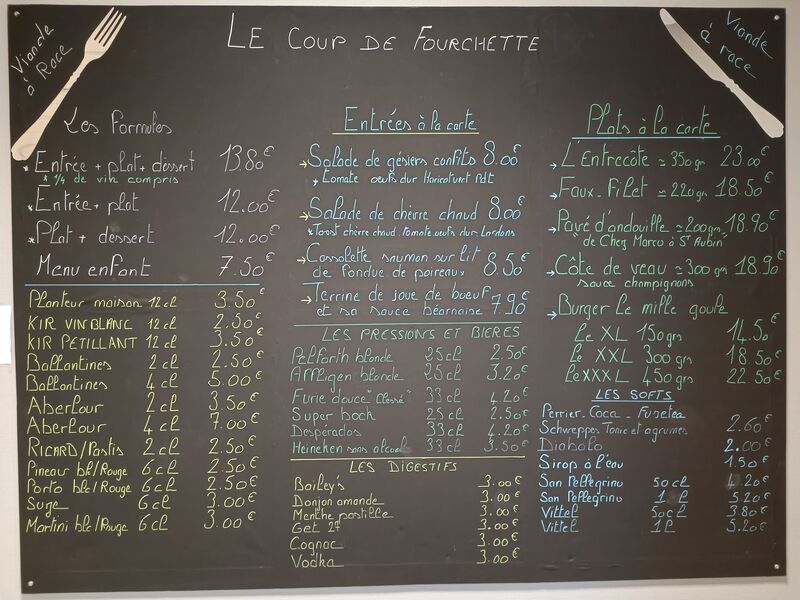 Viande
à Race
LE COUP DE FOURCHETTE
Viande
à race
Les Formules
Entrée + plat + dessert 13.80€
* 1/4 de vin compris
Entrée + plat 12.00€
Plat + dessert 12.00€
Menu enfant 7.50€
Planteur maison 12 cl 3.50€
KIR VIN BLANC 12 cl 2.50€
KIR PETILLANT 12 cl 3.50€
Ballantines 2 cl 2.50€
Ballantines 4 cl 5.00€
Aberlour 2 cl 3.50€
Aberlour 4 cl 7.00€
RICARD/Pastis 2 cl 2.50€
Pineau blc/Rouge 6 cl 2.50€
Porto blc/Rouge 6 cl 2.50€
Suze 6 cl 3.00€
Martini blc/Rouge 6 cl 3.00€
Entrées à la carte
→ Salade de gésiers confits 8.00€
* Tomate oeufs dur Haricot vert Pdt
→ Salade de chèvre chaud 8.00€
* Toast chèvre chaud. Tomate. oeufs dur. Lardons
→ Cassolette saumon sur lit
de fondue de poireaux 8.50€
→ Terrine de joue de boeuf
et sa sauce béarnaise 7.90€
LES PRESSIONS ET BIERES
Pelforth blonde 25 cl 2.50€
Affligen blonde 25 cl 3.20€
Furie douce "Clessé" 33 cl 4.20€
Super bock 25 cl 2.50€
Despérados 33 cl 4.20€
Heineken sans alcool 33 cl 3.50€
LES DIGESTIFS
Bailey's 3.00€
Donjon amande 3.00€
Menthe pastille 3.00€
Get 27 3.00€
Cognac 3.00€
Vodka 3.00€
Plats à la carte
→ L'Entrecôte ≃ 350 grs 23.00€
→ Faux-Filet ≃ 220 grs 18.50€
→ Pavé d'andouille ≃ 200 grs 18.90€
"de Chez Marco à St Aubin"
→ Côte de veau ≃ 300 grs 18.90€
sauce champignons
→ Burger le mille goute
Le XL 150 grs 14.50€
Le XXL 300 grs 18.50€
Le XXXL 450 grs 22.50€
LES SOFTS
Perrier. Coca. Fuzetea
Schweppes Tonic et agrumes 2.60€
Diabolo 2.00€
Sirop à l'eau 1.50€
San Pellegrino 50 cl 4.20€
San Pellegrino 1 l 5.20€
Vittel 50 cl 3.80€
Vittel 1 l 5.20€